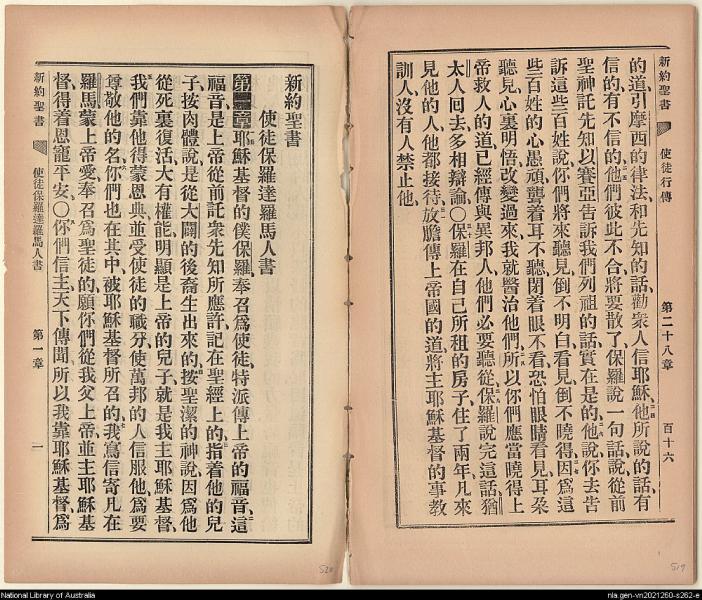 新約聖書 使徒行傳 第二十八章 百十六
的道、引摩西的律法和先知的話、勸衆人信耶穌、他所說的話、有
信的、有不信的、他們彼此不合、將要散了、保羅說一句話、說、從前
聖神託先知以賽亞告訴我們列祖的話、實在是的、他說、你去告
訴這些百姓說、你們將來聽見倒不明白、看見倒不曉得、因爲這
些百姓的心愚頑、聾着耳不聽、閉着眼不看、恐怕眼睛看見、耳朶
聽見、心裏明悟、改變過來、我就醫治他們、所以你們應當曉得、上
帝救人的道、已經傳與異邦人、他們必要聽從、保羅說完這話、猶
太人回去多相辯論、〇保羅在自己所租的房子、住了兩年、凡來
見他的人、他都接待、放膽傳上帝國的道、將主耶穌基督的事教
訓人、沒有人禁止他、
新約聖書
使徒保羅達羅馬人書
第一章耶穌基督的僕保羅、奉召爲使徒、特派傳上帝的福音、這
福音是上帝從前託衆先知所應許、記在聖經上的、指着他的兒
子、按肉體說、是從大闢的後裔生出來的、按聖潔的神說、因爲他
從死裏復活、大有權能、明顯是上帝的兒子、就是我主耶穌基督、
我們靠他得蒙恩典、並受使徒的職分、使萬邦的人信服他、爲要
尊敬他的名、你們也在其中、被耶穌基督所召的、我寫信寄凡在
羅馬蒙上帝愛奉召爲聖徒的、願你們從我父上帝、並主耶穌基
督、得着恩寵平安、〇你們信主、天下傳聞、所以我靠耶穌基督、爲
新約聖書 使徒保羅達羅馬人書 第一章 一
520
519
National Library of Australia
nla.gen-vn2021260-s262-e